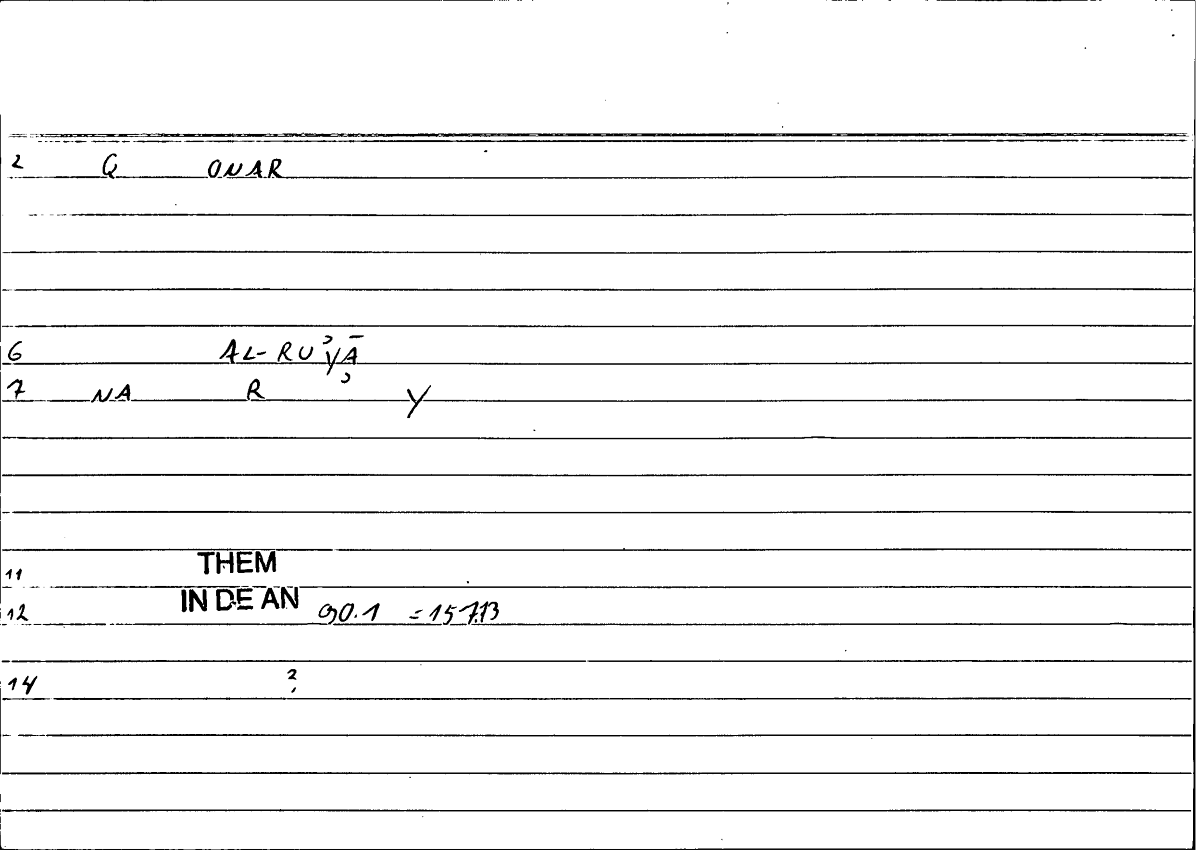 2 Q ONAR
6 AL-RUʾYĀ
7 NA R ʾ Y
11 THEM
12 IN DE AN 90.1 = 157.13
14 ?